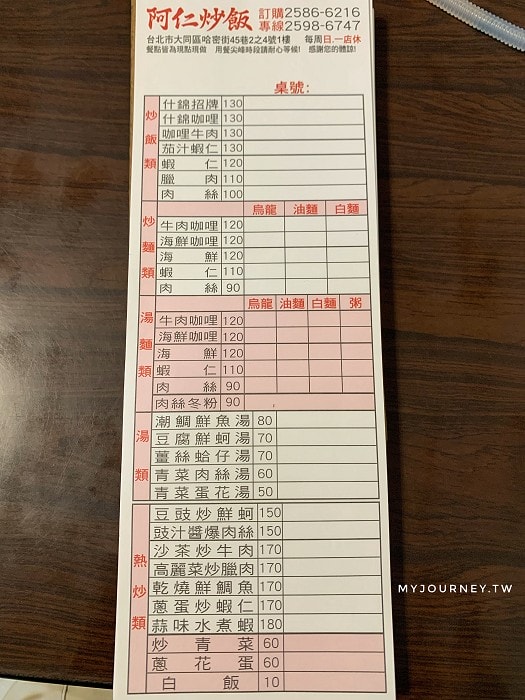 阿仁炒飯 訂購2586-6216
專線2598-6747
台北市大同區哈密街45巷2之4號1樓 每周日.一店休
餐點皆為現點現做 用餐尖峰時段請耐心等候! 感謝您的體諒!
桌號:
炒飯類
什錦招牌 130
什錦咖哩 130
咖哩牛肉 130
茄汁蝦仁 130
蝦仁 120
臘肉 110
肉絲 100
炒麵類
烏龍 油麵 白麵
牛肉咖哩 120
海鮮咖哩 120
海鮮 120
蝦仁 110
肉絲 90
湯麵類
烏龍 油麵 白麵 粥
牛肉咖哩 120
海鮮咖哩 120
海鮮 120
蝦仁 110
肉絲 90
肉絲冬粉 90
湯類
潮鯛鮮魚湯 80
豆腐鮮蚵湯 70
薑絲蛤仔湯 70
青菜肉絲湯 60
青菜蛋花湯 50
熱炒類
豆豉炒鮮蚵 150
豉汁醬爆肉絲 150
沙茶炒牛肉 170
高麗菜炒臘肉 170
乾燒鮮鯛魚 170
蔥蛋炒蝦仁 170
蒜味水煮蝦 180
炒青菜 60
蔥花蛋 60
白飯 10
MYJOURNEY.TW